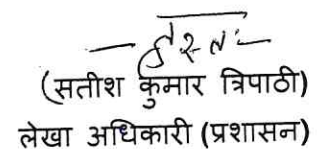 — हस्त:—
(सतीश कुमार त्रिपाठी)
लेखा अधिकारी (प्रशासन)